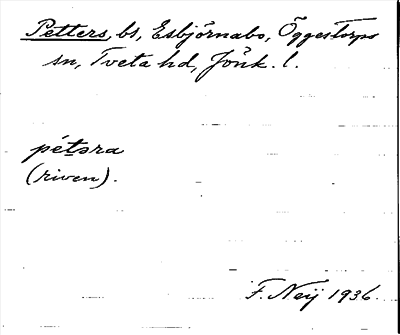 Petters, bs, Esbjörnabo, Öggestorps
sn, Tveta hd, Jönk. l.
pétəra
(riven).
F. Neij 1936.